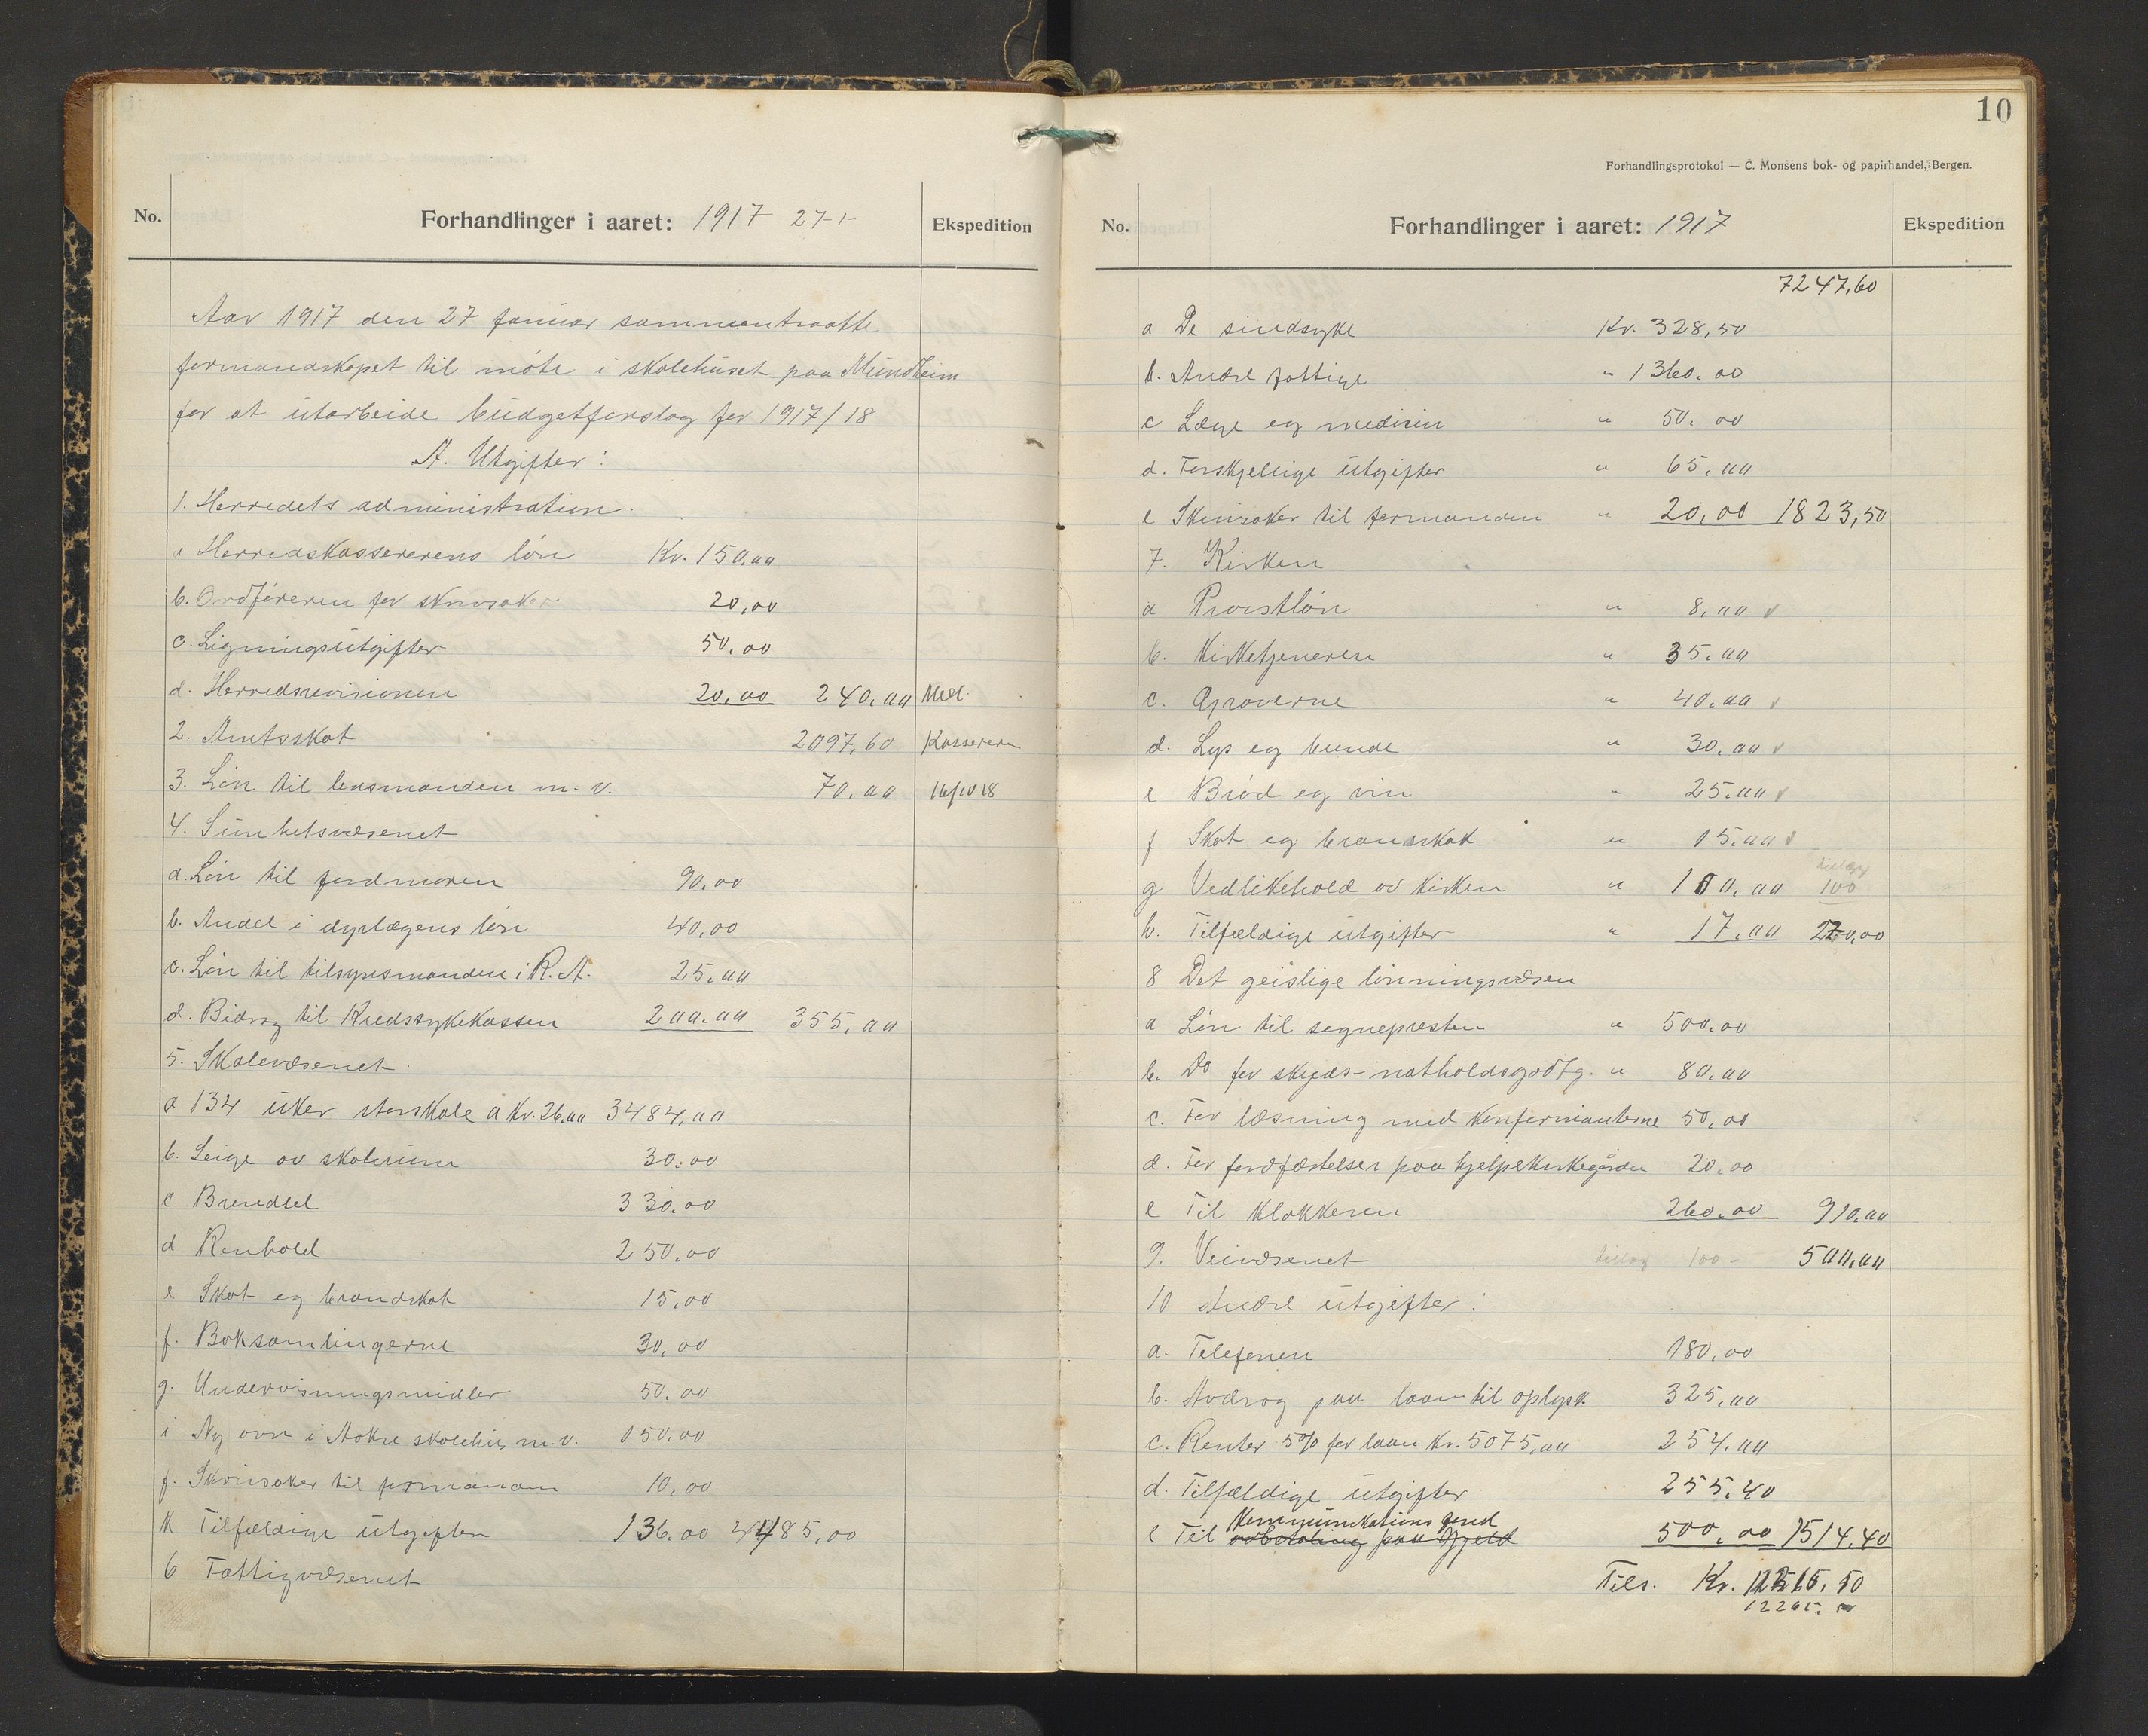 No.
Forhandlinger i aaret: 1917 27-1-
Ekspedition
Aar 1917 den 27 januar sammentraatte
formandskapet til møte i skolehuset paa Mundheim
for at utarbeide budgetforslag for 1917/18
A. Utgifter:
1. Herredets administration.
a Herredskassererens løn Kr. 150,00
b. Ordføreren for skrivsaker 20,00
c. Ligningsutgifter 50,00
d. Herredsrevisionen 20,00 240,00 Med.
2. Amtsskat 2097,60 Kassereren
3. Løn til lensmanden m. v. 70,00 16/10 18
4. Sunhetsvæsenet
a. Løn til jordmoren 90,00
b. Andel i dyrlægens løn 40,00
c. Løn til tilsynsmanden i R. A. 25,00
d. Bidrag til Kredssykekassen 200,00 355,00
5. Skolevæsenet.
a 134 uker storskole a Kr. 26,00 3484,00
b. Leige av skolerum 30,00
c Brendsel 330,00
d Renhold 250,00
e Skat og brandskat 15,00
f. Boksamlingerne 30,00
g. Undervisningsmidler 50,00
i Ny ovn i Aakre skolehus m. v. 150,00
j. Skrivsaker til formanden 10,00
k Tilfældige utgifter 136,00 4485,00
6 Fattigvæsenet
10
Forhandlingsprotokol — C. Monsens bok- og papirhandel, Bergen.
No.
Forhandlinger i aaret: 1917
Ekspedition
7247,60
a De sindsyke Kr. 328,50
b. Andre fattige " 1360,00
c Læge og medicin " 50,00
d. Forskjellige utgifter " 65,00
e Skrivsaker til formanden " 20,00 1823,50
7. Kirken
a Provstløn " 8,00 v
b. Kirketjeneren " 35,00
c. Graverne " 40,00 v
d. Lys og bunde " 30,00 v
e Brød og vin " 25,00 v
f Skat og brandskat " 15,00 v
tillæg
g Vedlikehold av kirken " 100,00 100
h. Tilfældige utgifter " 17,00 270,00
8 Det geistlige lønningsvæsen
a Løn til sognepresten " 500,00
b. Do for skyds- natholdsgodtg. " 80,00
c. For læsning med konfirmanterne 50,00
d. For jordfæstelser paa hjelpekirkegården 20,00
e Til klokkeren 260,00 910,00
9. Veivæsenet tillæg 100- 500,00
10 Andre utgifter:
a. Telefonen 180,00
b. Avdrag paa laan til oplysn. 325,00
c. Renter 5% for laan Kr. 5075,00 254,00
d. Tilfældige utgifter 255,40
Kommunikationsfond
e Til avbetaling paa gjæld 500,00 1514,40
Tils. Kr. 12265,50
12265.